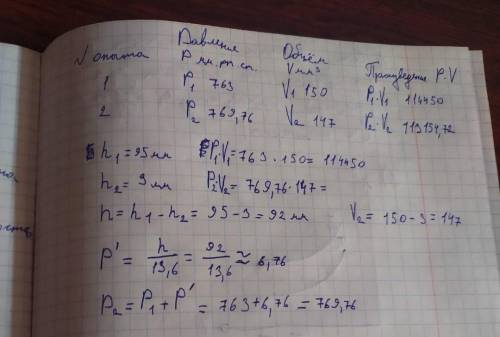 № опыта Давление Р мм.рт.ст. Объём V мм³ Произведение P·V
1 P₁ 763 V₁ 150 P₁·V₁ 114450
2 P₂ 769,76 V₂ 147 P₂·V₂ 113154,72
h₁ = 95 мм P₁V₁ = 763 · 150 = 114450
h₂ = 3 мм P₂V₂ = 769,76 · 147 =
h = h₁ - h₂ = 95 - 3 = 92 мм V₂ = 150 - 3 = 147
P' = h/13,6 = 92/13,6 ≈ 6,76
P₂ = P₁ + P' = 763 + 6,76 = 769,76